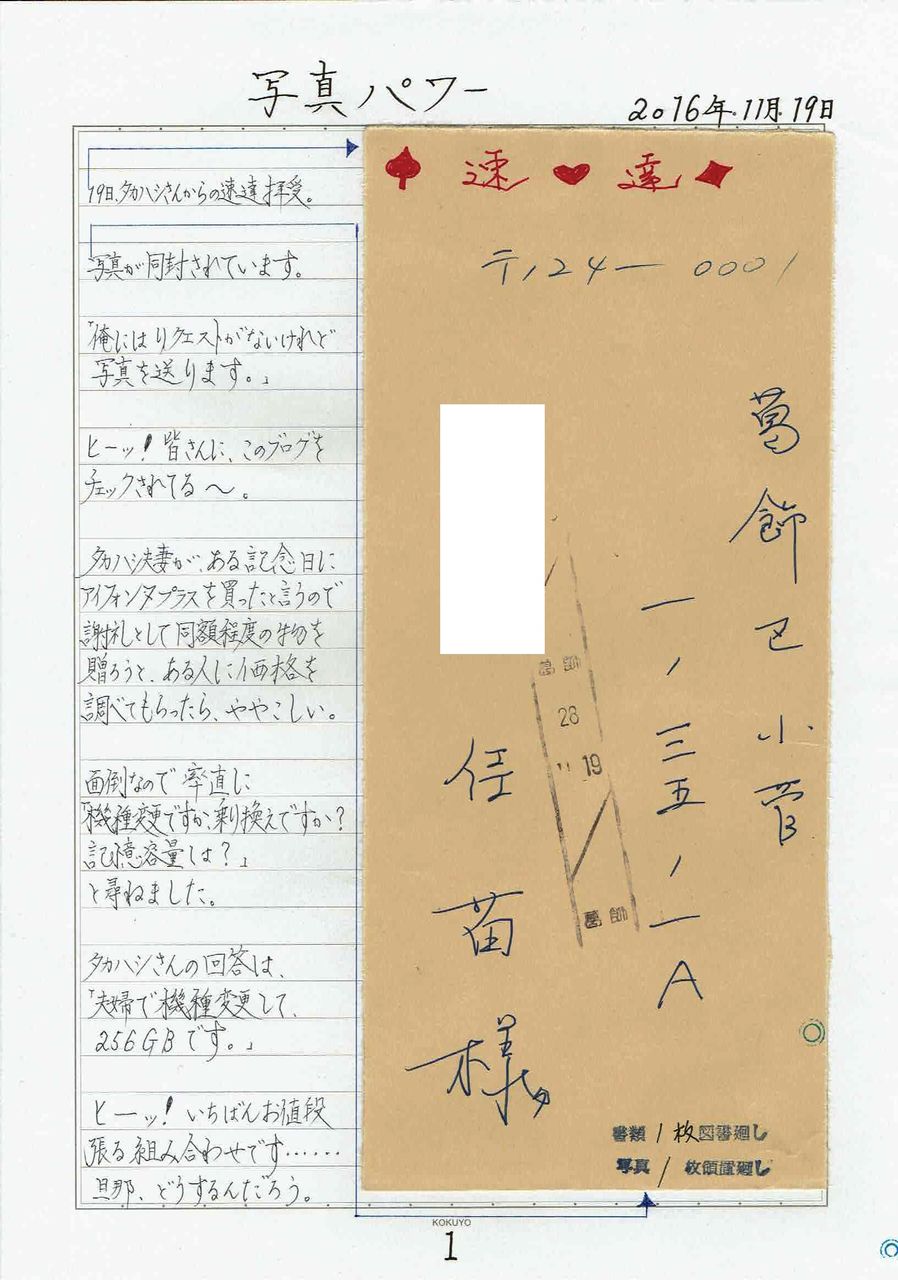 写真パワー
2016年.11月.19日
19日、タカハシさんからの速達拝受。
写真が同封されています。
「俺にはリクエストがないけれど
写真を送ります。」
ヒーッ!皆さんに、このブログを
チェックされてる〜。
タカハシ夫妻が、ある記念日に
アイフォン7プラスを買ったと言うので
謝礼として同額程度の物を
贈ろうと、ある人に価格を
調べてもらったら、ややこしい。
面倒なので率直に
「機種変更ですか、乗り換えですか?
記憶容量は?」
と尋ねました。
タカハシさんの回答は、
「夫婦で機種変更して、
256GBです。」
ヒーッ!いちばんお値段
張る組み合わせです……
旦那、どうするんだろう。
♠ 速 ♥ 達 ♦
〒124-0001
葛飾区小菅
一ノ三五ノ一A
任 苗 様
葛飾
28
11 19
葛飾
書類 1枚図書廻し
写真 1枚領置廻し
KOKUYO
1